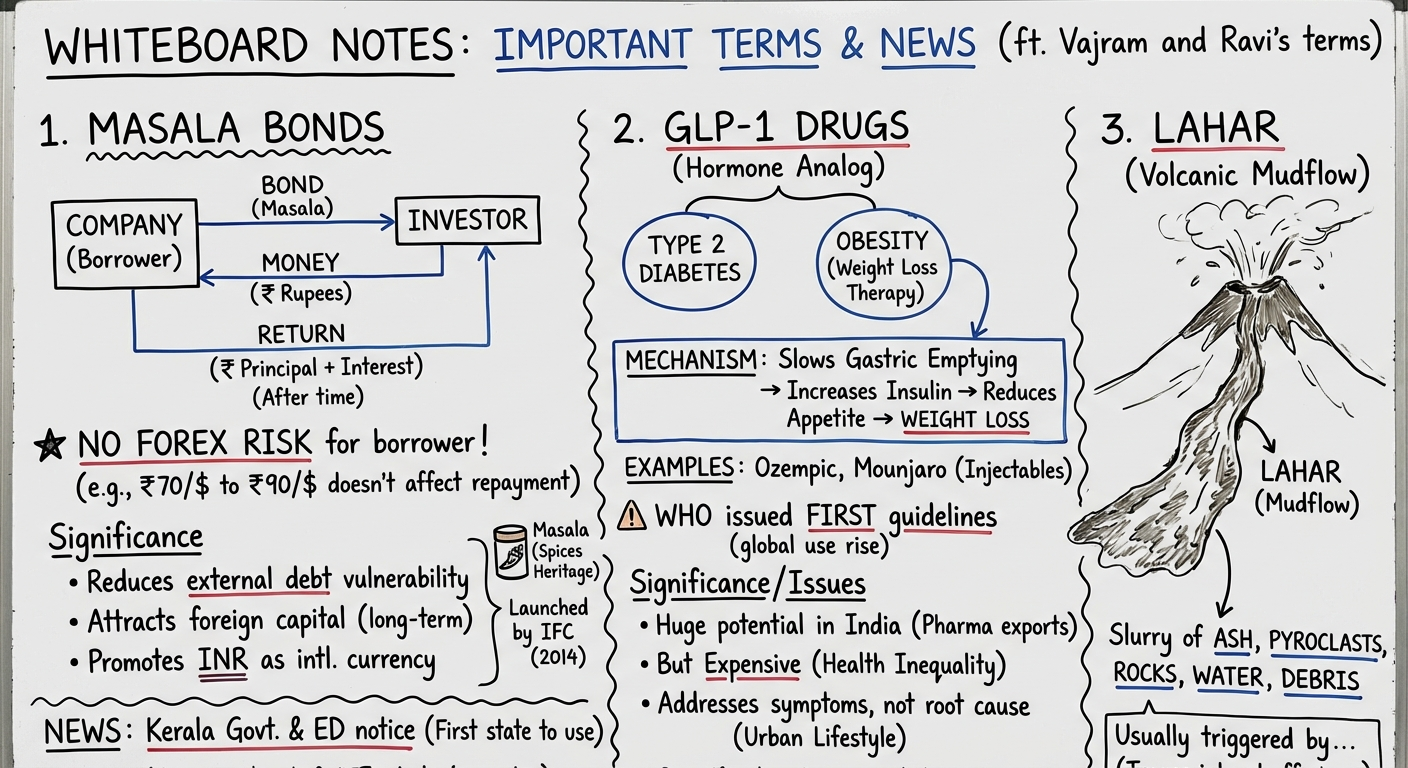 WHITEBOARD NOTES: IMPORTANT TERMS & NEWS (ft. Vajram and Ravi's terms)
1. MASALA BONDS
COMPANY
(Borrower)
BOND
(Masala)
INVESTOR
MONEY
(₹ Rupees)
RETURN
(₹ Principal + Interest)
(After time)
★ NO FOREX RISK for borrower!
(e.g., ₹70/$ to ₹90/$ doesn't affect repayment)
Significance
• Reduces external debt vulnerability
• Attracts foreign capital (long-term)
• Promotes INR as intl. currency
Masala
(Spices
Heritage)
Launched
by IFC
(2014)
NEWS: Kerala Govt. & ED notice (First state to use)
2. GLP-1 DRUGS
(Hormone Analog)
TYPE 2
DIABETES
OBESITY
(Weight Loss
Therapy)
MECHANISM: Slows Gastric Emptying
→ Increases Insulin → Reduces
Appetite → WEIGHT LOSS
EXAMPLES: Ozempic, Mounjaro (Injectables)
⚠ WHO issued FIRST guidelines
(global use rise)
Significance/Issues
• Huge potential in India (Pharma exports)
• But Expensive (Health Inequality)
• Addresses symptoms, not root cause
(Urban Lifestyle)
3. LAHAR
(Volcanic Mudflow)
LAHAR
(Mudflow)
Slurry of ASH, PYROCLASTS,
ROCKS, WATER, DEBRIS
Usually triggered by...